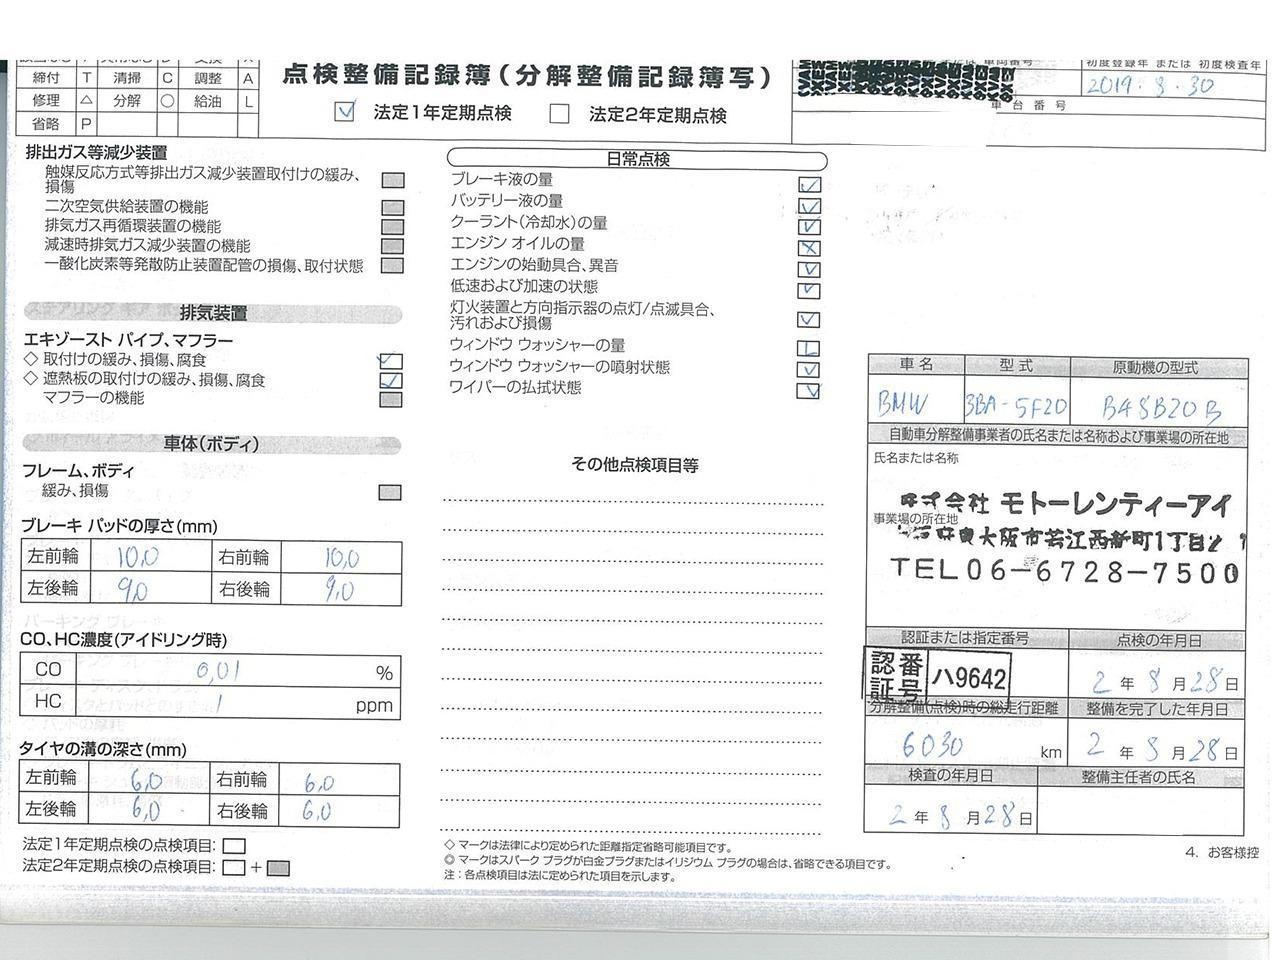 点検整備記録簿(分解整備記録簿写)
締付 T 清掃 C 調整 A
修理 △ 分解 ○ 給油 L
省略 P
法定1年定期点検 法定2年定期点検
初度登録年 または 初度検査年
2019.8.30
車台番号
排出ガス等減少装置
触媒反応方式等排出ガス減少装置取付けの緩み、
損傷
二次空気供給装置の機能
排気ガス再循環装置の機能
減速時排気ガス減少装置の機能
一酸化炭素等発散防止装置配管の損傷、取付状態
排気装置
エキゾースト パイプ、マフラー
◇ 取付けの緩み、損傷、腐食
◇ 遮熱板の取付けの緩み、損傷、腐食
マフラーの機能
車体(ボディ)
フレーム、ボディ
緩み、損傷
ブレーキ パッドの厚さ(mm)
左前輪 10,0 右前輪 10,0
左後輪 9,0 右後輪 9,0
CO、HC濃度(アイドリング時)
CO 0,01 %
HC 1 ppm
タイヤの溝の深さ(mm)
左前輪 6,0 右前輪 6,0
左後輪 6,0 右後輪 6,0
法定1年定期点検の点検項目:
法定2年定期点検の点検項目: +
日常点検
ブレーキ液の量
バッテリー液の量
クーラント(冷却水)の量
エンジン オイルの量
エンジンの始動具合、異音
低速および加速の状態
灯火装置と方向指示器の点灯/点滅具合、
汚れおよび損傷
ウィンドウ ウォッシャーの量 L
ウィンドウ ウォッシャーの噴射状態
ワイパーの払拭状態
その他点検項目等
◇ マークは法律により定められた距離指定省略可能項目です。
◎ マークはスパーク プラグが白金プラグまたはイリジウム プラグの場合は、省略できる項目です。
注:各点検項目は法に定められた項目を示します。
車名 型式 原動機の型式
BMW 3BA-5F20 B48B20B
自動車分解整備事業者の氏名または名称および事業場の所在地
氏名または名称
株式会社 モトーレンティーアイ
事業場の所在地
東大阪市若江西新町1丁目
TEL06-6728-7500
認証または指定番号 点検の年月日
認証番号 ハ9642
2年8月28日
分解整備(点検)時の総走行距離 整備を完了した年月日
6030km 2年8月28日
検査の年月日 整備主任者の氏名
2年8月28日
4. お客様控